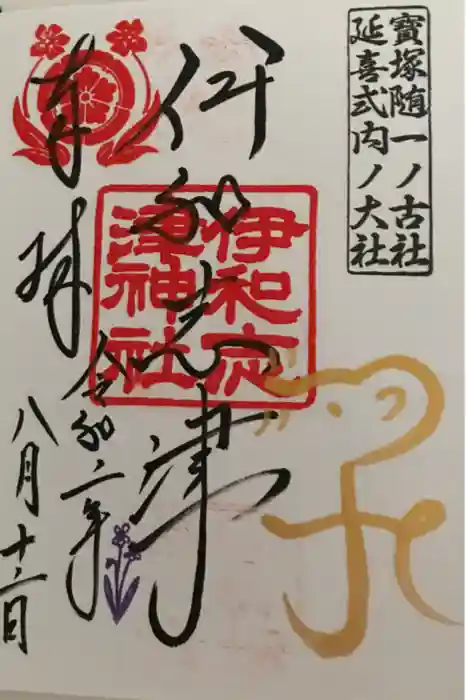 寶塚随一ノ古社
延喜式内ノ大社
伊和志津
伊和志
津神社
奉拝
令和二年
八月十二日
子